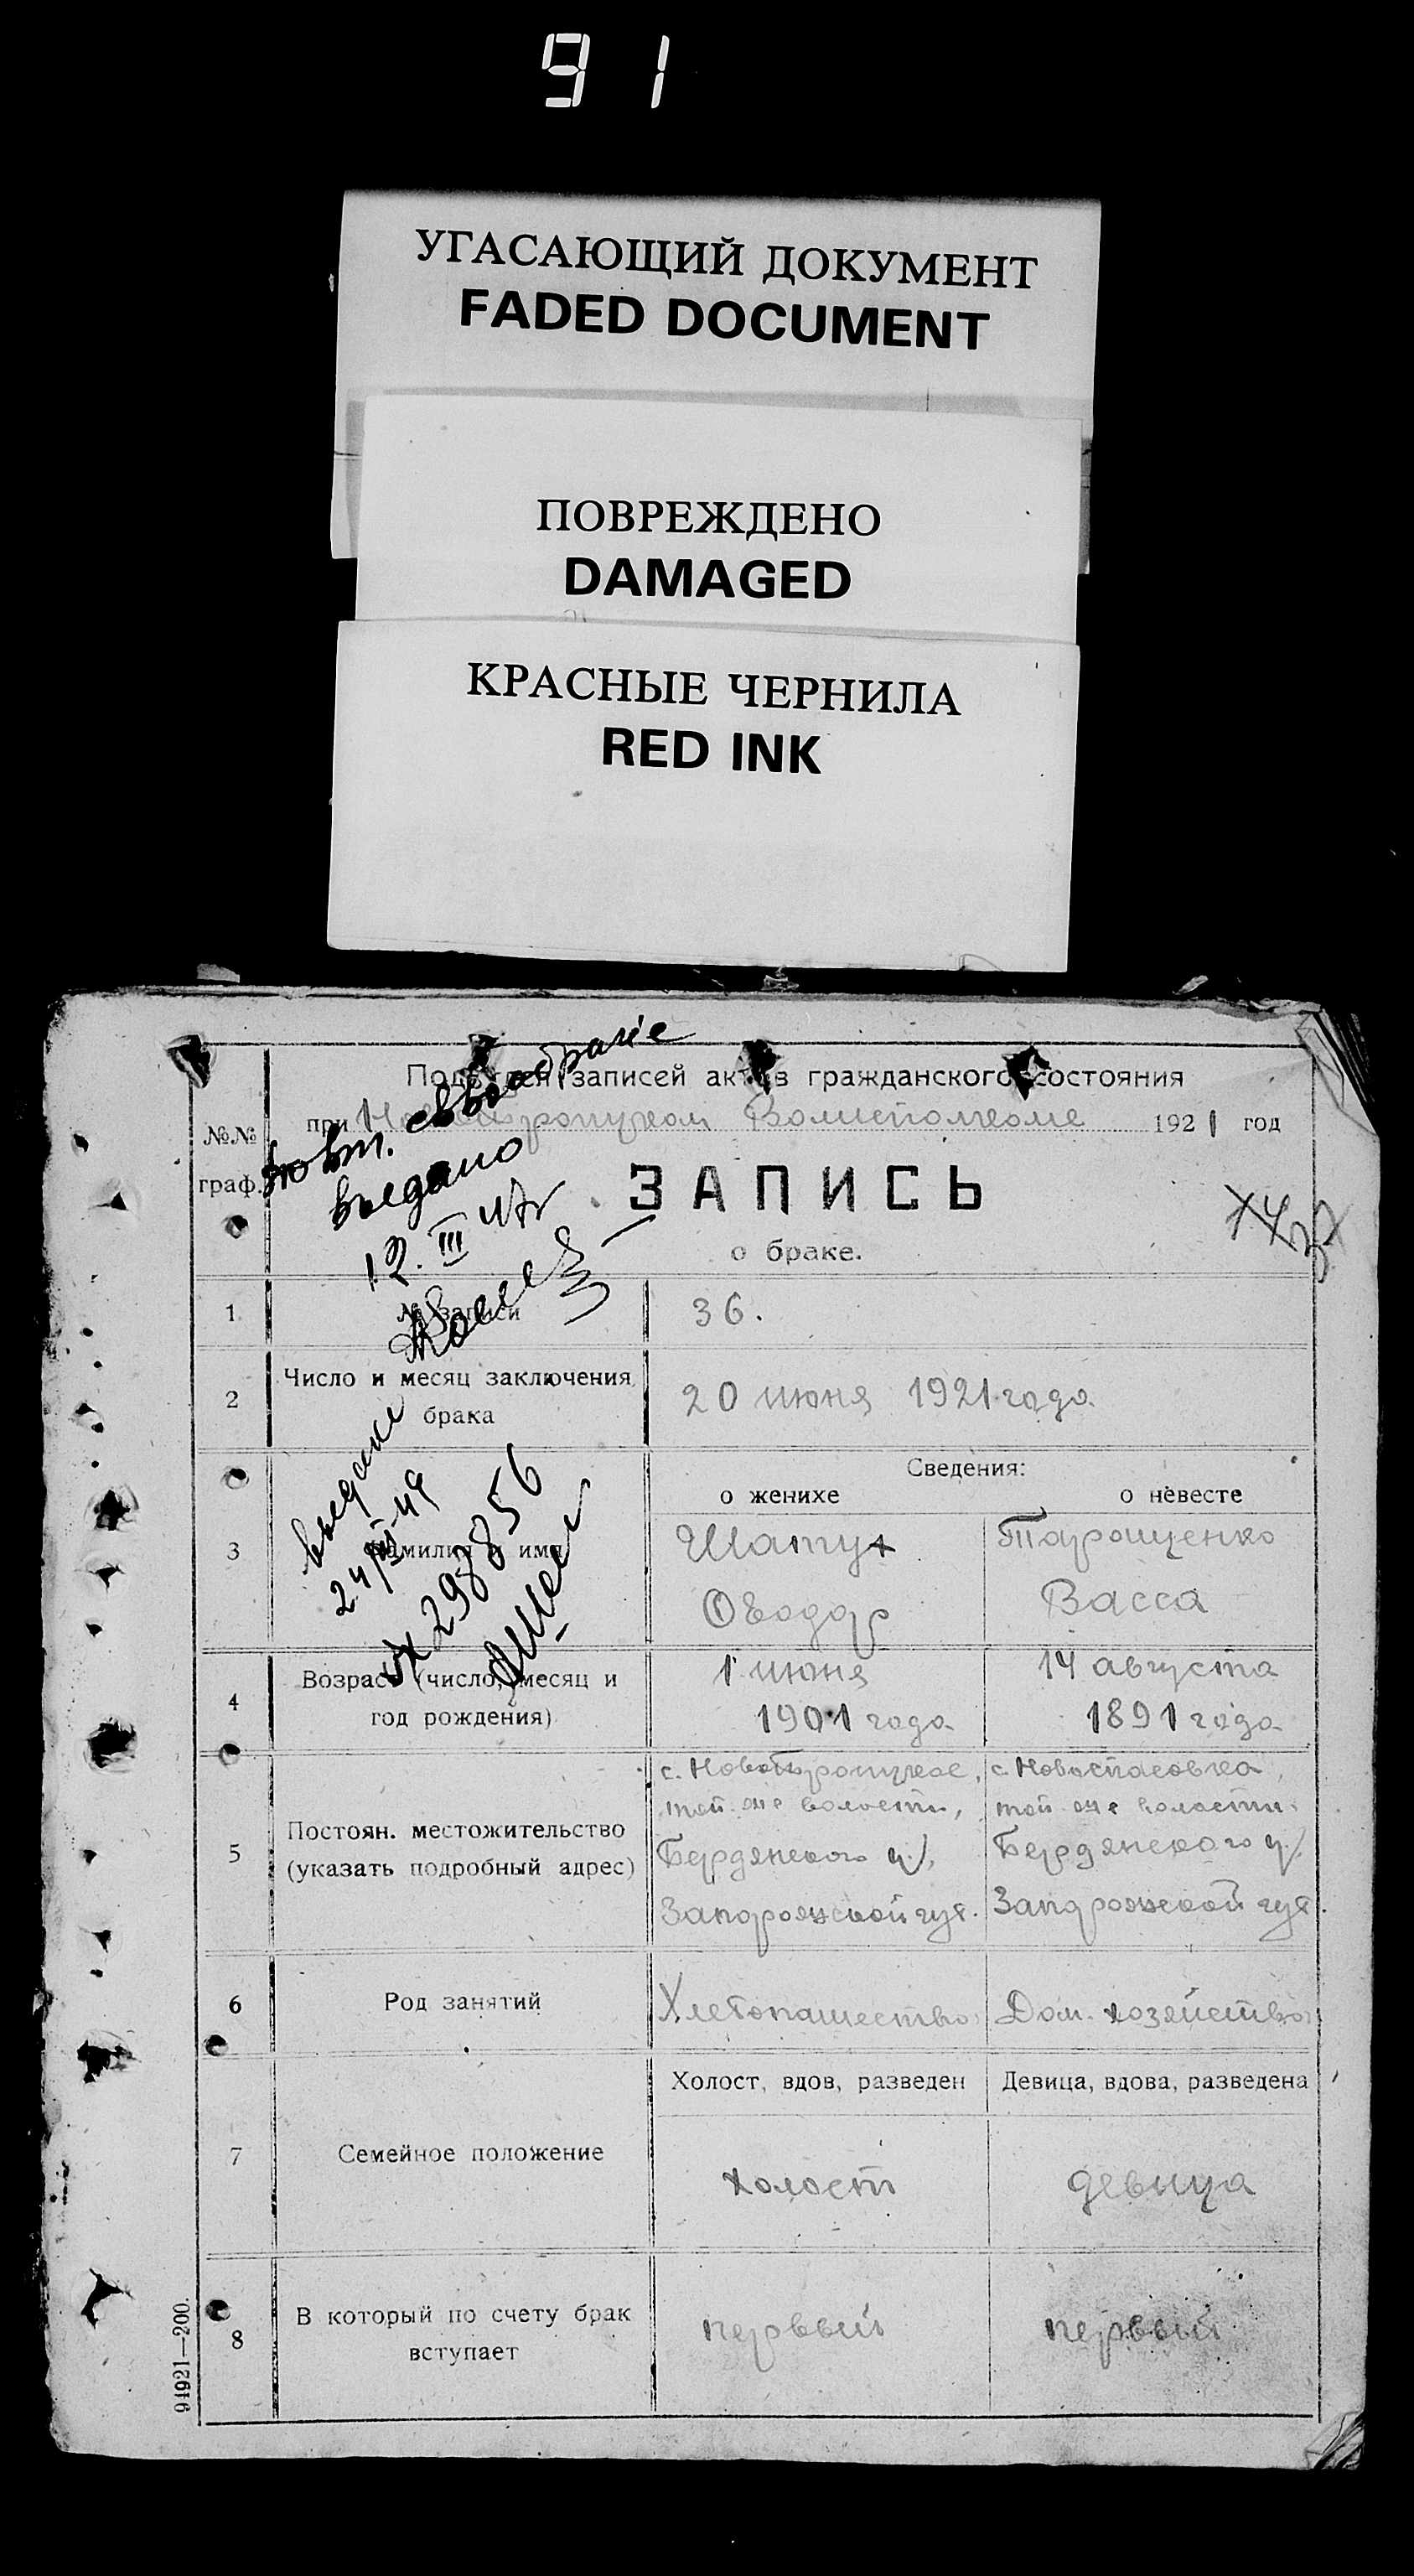 91
УГАСАЮЩИЙ ДОКУМЕНТ
FADED DOCUMENT
ПОВРЕЖДЕНО
DAMAGED
КРАСНЫЕ ЧЕРНИЛА
RED INK
записей актов гражданского состояния
при Волисполкоме 1921 год
№№
граф.
повт. св. о браке
выдано
12. III 47г
ЗАПИСЬ
о браке.
1
№ записи
36.
2
Число и месяц заключения
брака
20 июня 1921 года
Сведения:
о женихе
о невесте
3
Фамилия и имя
Шапух
Тарощенко
Феодор
Васса
выдано
298856
4
Возраст (число, месяц и
год рождения)
1 июня
1901 года
14 августа
1891 года
5
Постоян. местожительство
(указать подробный адрес)
с. Новотроицкое,
той же волости,
Бердянского у.,
Запорожской губ.
с. Новоспасовка,
той же волости.
Бердянского у.
Запорожской губ.
6
Род занятий
Хлебопашество
Дом. хозяйство
7
Семейное положение
Холост, вдов, разведен
Девица, вдова, разведена
холост
девица
8
В который по счету брак
вступает
первый
первый
94921—200.